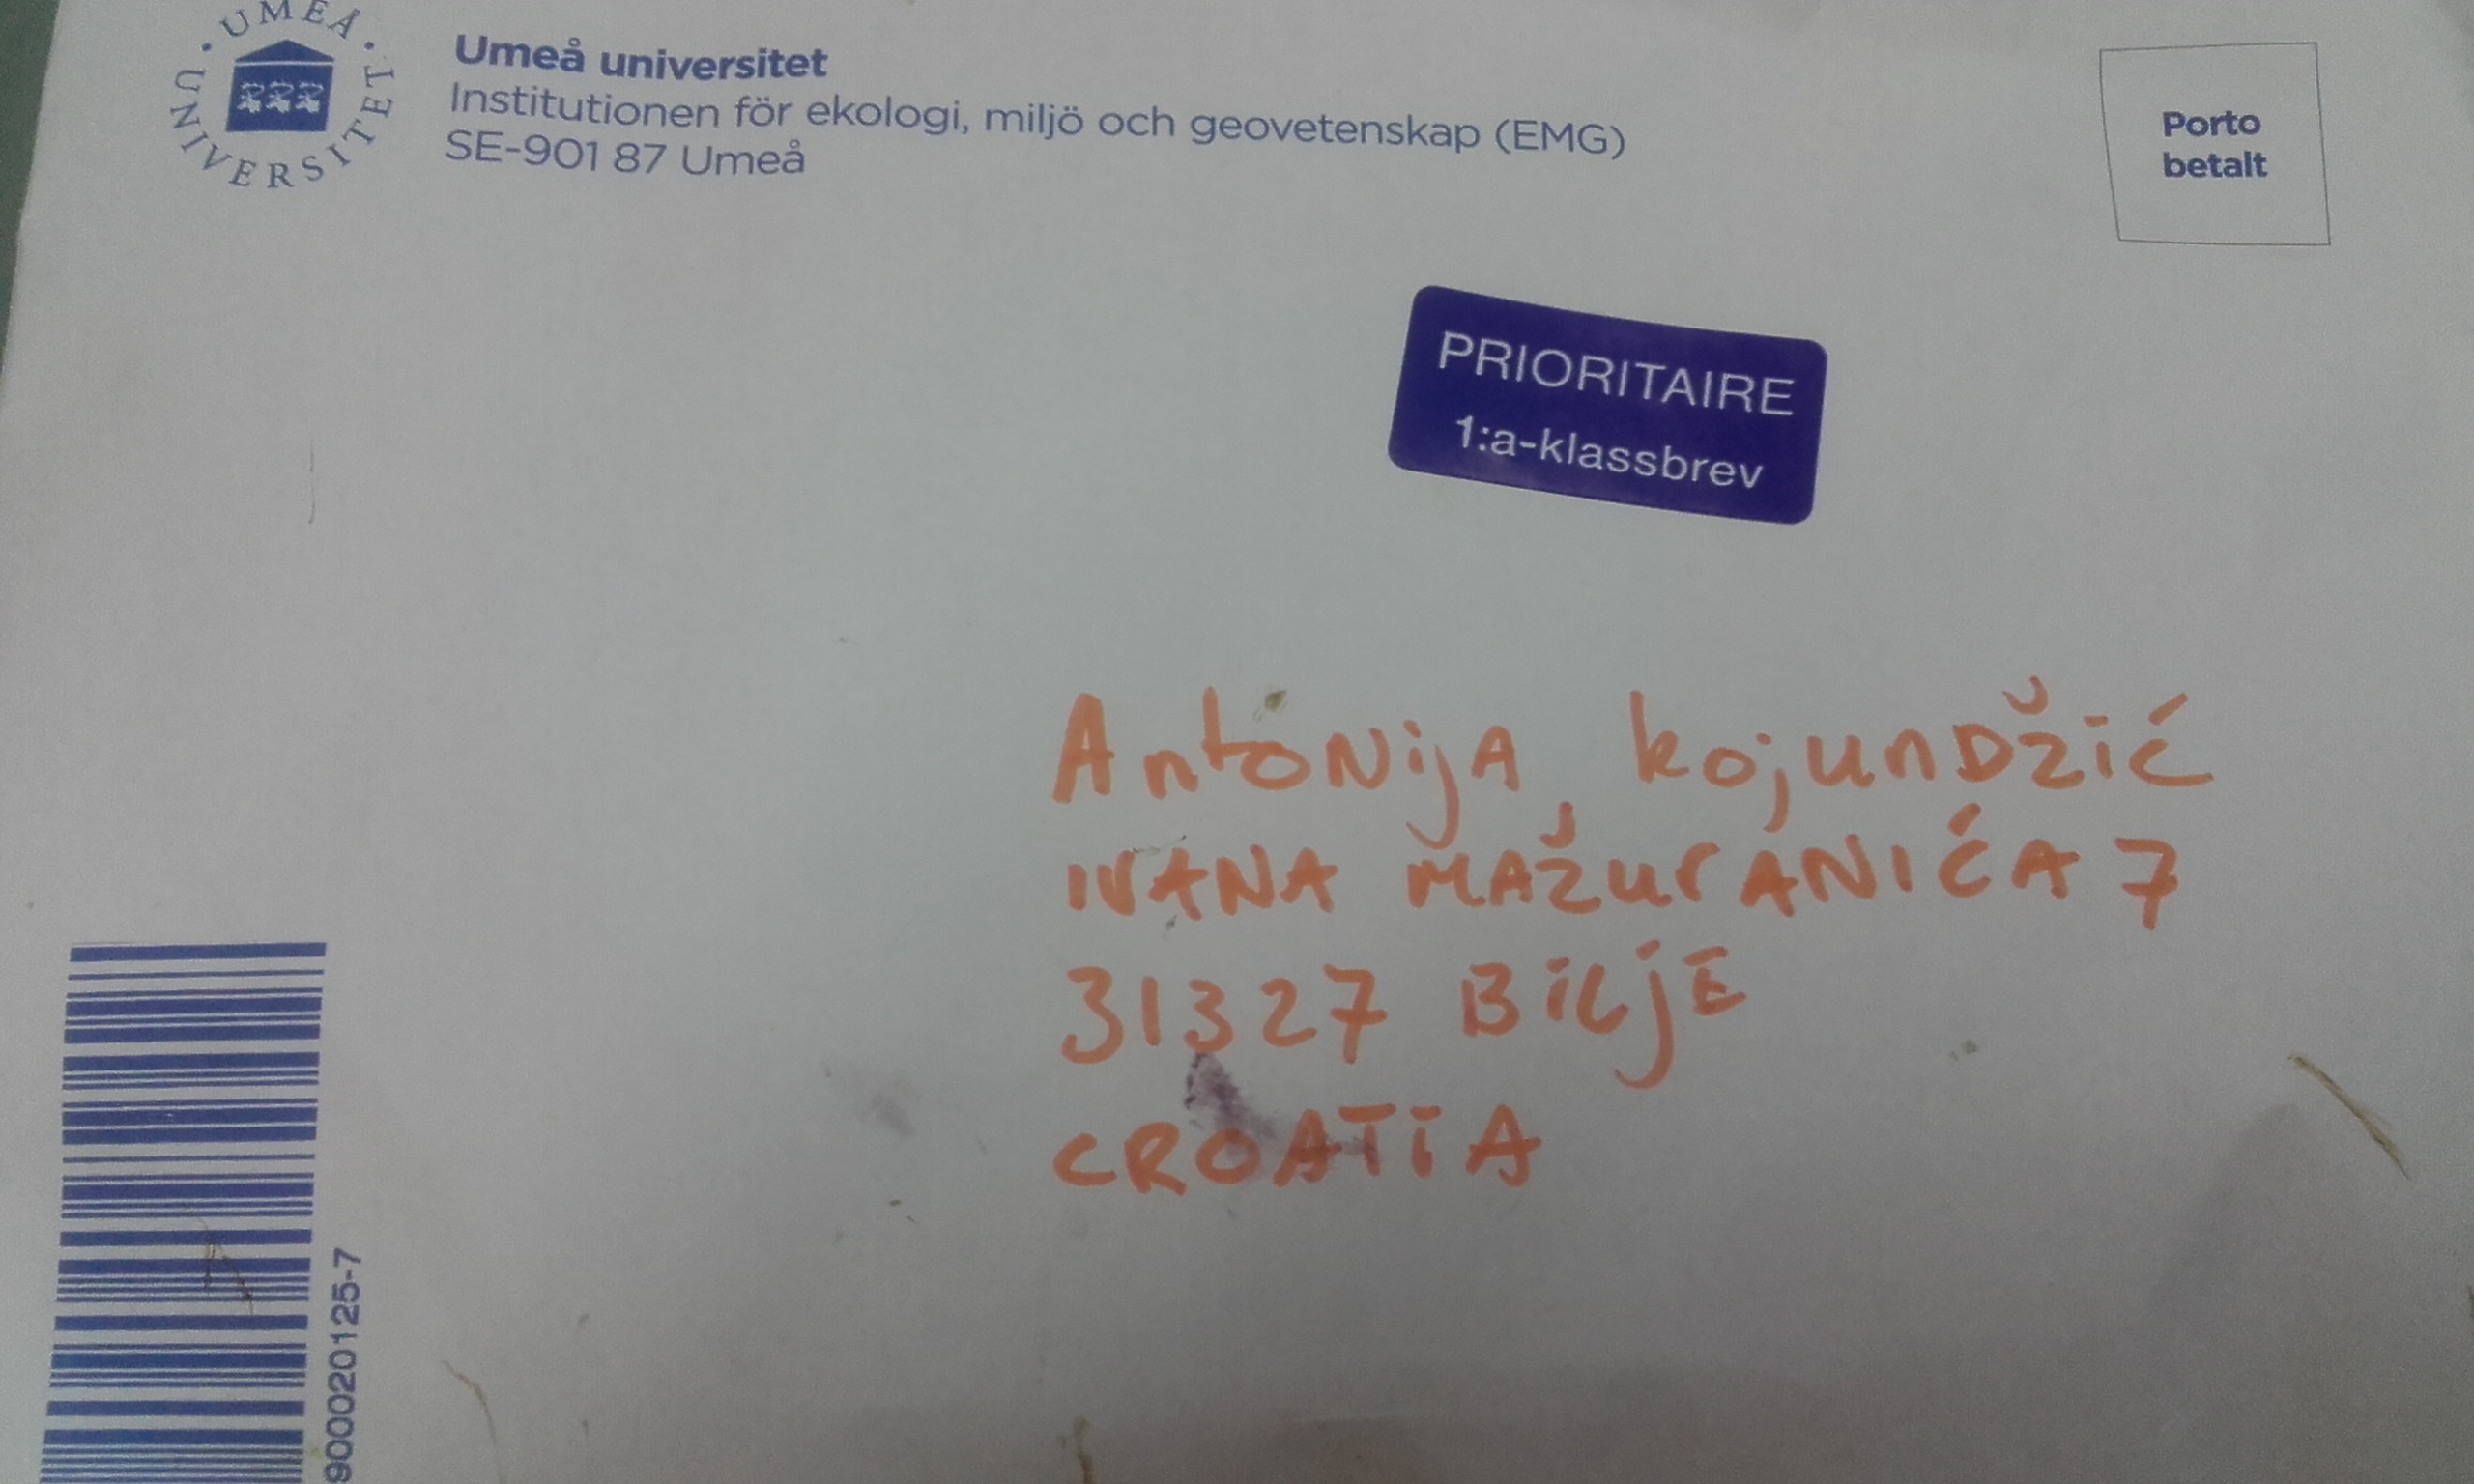 UMEÅ UNIVERSITET
Umeå universitet
Institutionen för ekologi, miljö och geovetenskap (EMG)
SE-901 87 Umeå
Porto
betalt
PRIORITAIRE
1:a-klassbrev
AntoNijA kojunDžić
IVANA MAŽurANIĆA 7
31327 BiljE
CROATiA
900020125-7